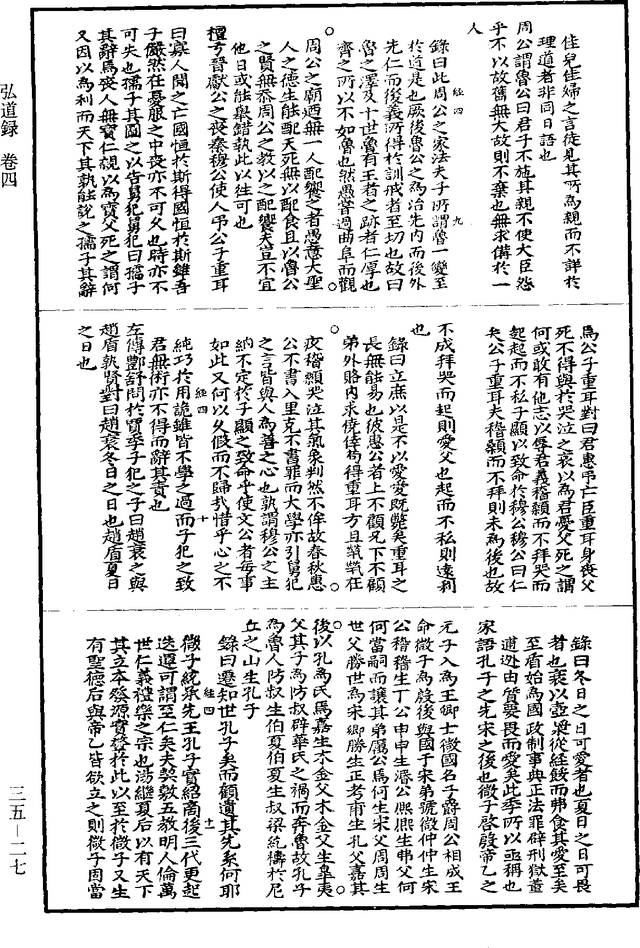 弘道录 卷四
佳兒佳婦之言徒見其所爲親而不詳於
理道者非同日語也
周公謂魯公曰君子不施其親不使大臣怨
乎不以故舊無大故則不棄也無求備於一
人
經四 九
錄曰此周公之家法夫子所謂魯一變至
於道是也厥後魯公之爲治先內而後外
先仁而後義所得於訓戒者至切也故曰
魯之澤及十世魯有王者之跡者仁厚也
齊之所以不如魯也然愚嘗過曲阜而觀
周公之廟廼無一人配饗之者愚意大聖
人之德生能配天死無以配食且以魯公
之賢無忝周公之教以之配饗夫豈不宜
他日或能舉錯執此以往可也
檀弓晉獻公之喪秦穆公使人弔公子重耳
曰寡人聞之亡國恒於斯得國恒於斯雖吾
子儼然在憂服之中喪亦不可久也時亦不
可失也孺子其圖之以告舅犯舅犯曰孺子
其辭焉喪人無寶仁親以爲寶父死之謂何
又因以爲利而天下其孰能說之孺子其辭
焉公子重耳對曰君惠弔亡臣重耳身喪父
死不得與於哭泣之哀以爲君憂父死之謂
何或敢有他志以辱君義稽顙而不拜哭而
起起而不私子顯以致命於穆公穆公曰仁
夫公子重耳夫稽顙而不拜則未爲後也故
不成拜哭而起則愛父也起而不私則遠利
也
錄曰立庶以是不以愛愛既斃矣重耳之
長無能易也彼惠公者上不顧兄下不顧
弟外賂內求僥倖茍得重耳方且煢煢在
疚稽顙哭泣其氣象判然不侔故春秋惠
公不書入里克不書罪而大學亦引舅犯
之言皆與人爲善之心也孰謂穆公之主
納不定於子顯之致命乎使文公者每事
如此又何以久假而不歸哉惜乎心之不
經四 十
純巧於用詭雖皆不學之過而子犯之致
君無術亦不得而辭其責也
左傳酆舒問於賈季子犯之子曰趙衰之與
趙盾孰賢對曰趙衰冬日之日也趙盾夏日
之日也
錄曰冬日之日可愛者也夏日之日可畏
者也衰以壺飧從經餒而弗食其愛至矣
至盾始爲國政制事典正法罪辟刑獄董
逋逃由質要畏而愛矣此季所以亟稱也
家語孔子之先宋之後也微子啓啟帝乙之
元子入爲王卿士微國名子爵周公相成王
命微子爲殷後與國于宋弟號微仲仲生宋
公稽稽生丁公申申生湣公熙熙生弗父何
何當嗣而讓其弟厲公焉何生宋父周周生
世父勝世爲宋卿勝生正考甫生孔父嘉其
後以孔爲氏焉嘉生木金父木金父生臯夷
父其子爲防叔辟華氏之禍而奔魯故孔子
爲魯人防叔生伯夏伯夏生叔梁紇禱於尼
丘之山生孔子
錄曰遷知世孔子矣而顧遺其先系何耶
經四 十一
微子統承先王孔子實紹商後三代更起
迭遷可謂至仁矣夫契敷五教明人倫萬
世仁義禮樂之宗也湯繼夏后以有天下
其立本發源實發於此以至於微子又生
有聖德后與帝乙皆欲立之則微子固當
三五—二七